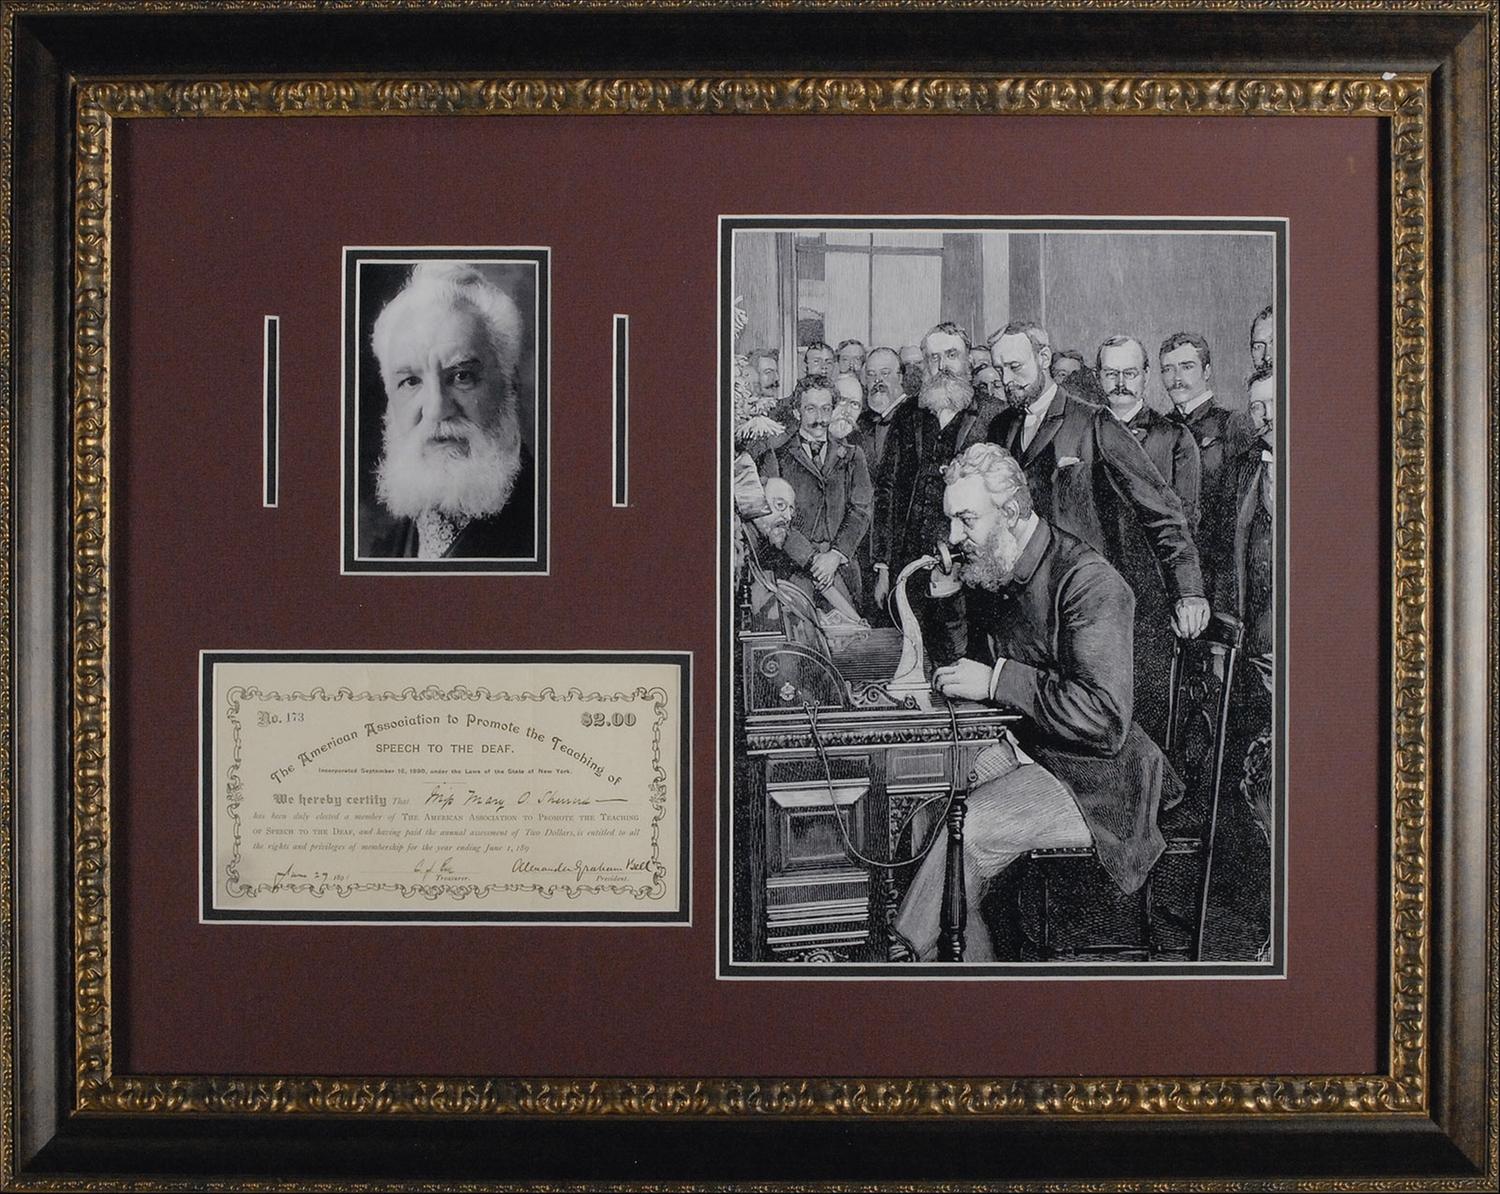 No. 173
$2.00
The American Association to Promote the Teaching of
SPEECH TO THE DEAF.
Incorporated September 16, 1890, under the Laws of the State of New York.
We hereby certify That Miss Mary O.
has been duly elected a member of THE AMERICAN ASSOCIATION TO PROMOTE THE TEACHING
OF SPEECH TO THE DEAF, and having paid the annual assessment of Two Dollars, is entitled to all
the rights and privileges of membership for the year ending June 1, 189
June 29 1891
Alexander Graham Bell
Treasurer.
President.